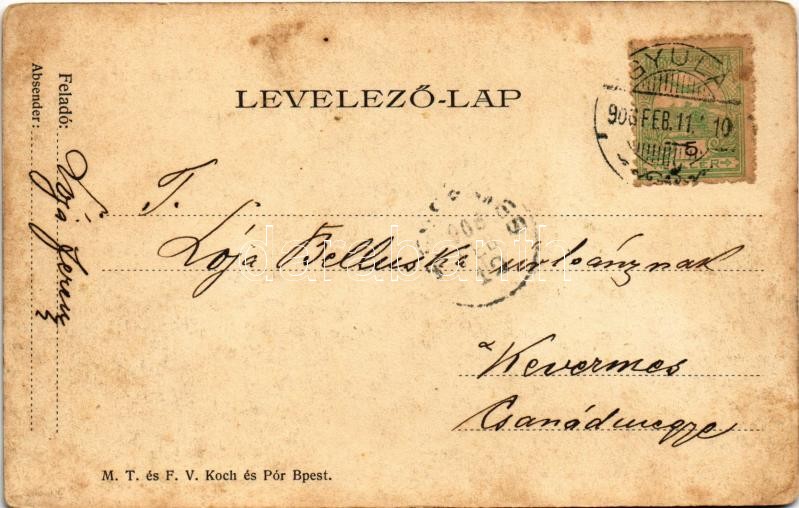 LEVELEZŐ-LAP
Feladó:
Absender:
Lója Ferenc
GYULA
906 FEB. 11. 10
T.
Lója Belluska urleánynak
Kevermes
Csanádmegye
M. T. és F. V. Koch és Pór Bpest.